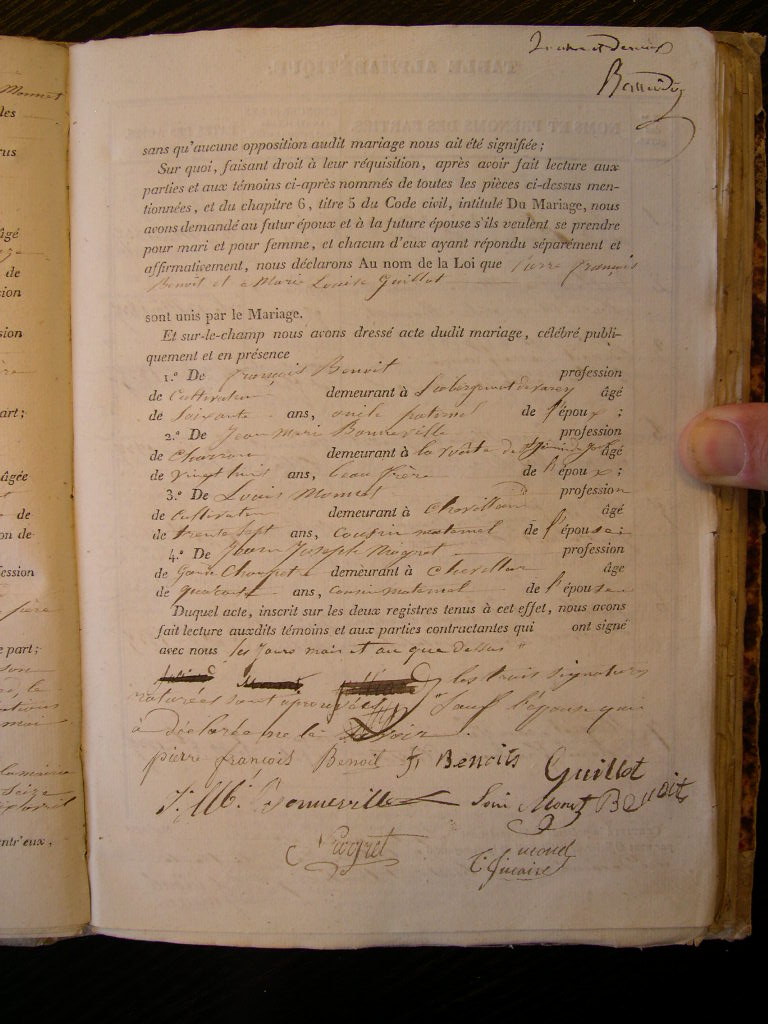 Monnet
les
rus
âgé
de
sion
sion
art;
âgée
de
on de
fession
e part;
mai
la mairie
seize
avril
entr'eux,
et dernier
sans qu'aucune opposition audit mariage nous ait été signifiée;
Sur quoi, faisant droit à leur réquisition, après avoir fait lecture aux
parties et aux témoins ci-après nommés de toutes les pièces ci-dessus men-
tionnées, et du chapitre 6, titre 5 du Code civil, intitulé Du Mariage, nous
avons demandé au futur époux et à la future épouse s'ils veulent se prendre
pour mari et pour femme, et chacun d'eux ayant répondu séparément et
affirmativement, nous déclarons Au nom de la Loi que Pierre françois
Benoit et Marie Louise Guillot
sont unis par le Mariage.
Et sur-le-champ nous avons dressé acte dudit mariage, célébré publi-
quement et en présence
1.º De françois Benoit profession
de Cultivateur demeurant à âgé
de Soixante ans, oncle paternel de l'époux;
2.º De Jean Marie Bonneville profession
de Charron demeurant à la âgé
de vingt huit ans, beau frère de l'époux;
3.º De Louis Monnet profession
de Cultivateur demeurant à âgé
de trente sept ans, Cousin maternel de l'épouse;
4.º De Jean Joseph profession
de Garde Champetre demeurant à âgé
de quarante ans, cousin maternel de l'épouse
Duquel acte, inscrit sur les deux registres tenus à cet effet, nous avons
fait lecture auxdits témoins et aux parties contractantes qui ont signé
avec nous les Jours mois et an que dessus
les trois signatures
raturées sont aprouvées Sauf l'épouse qui
a déclarée ne le Savoir.
pierre françois Benoit f Benoits Guillot
J. M. Bonneville Loui Monet Benoit